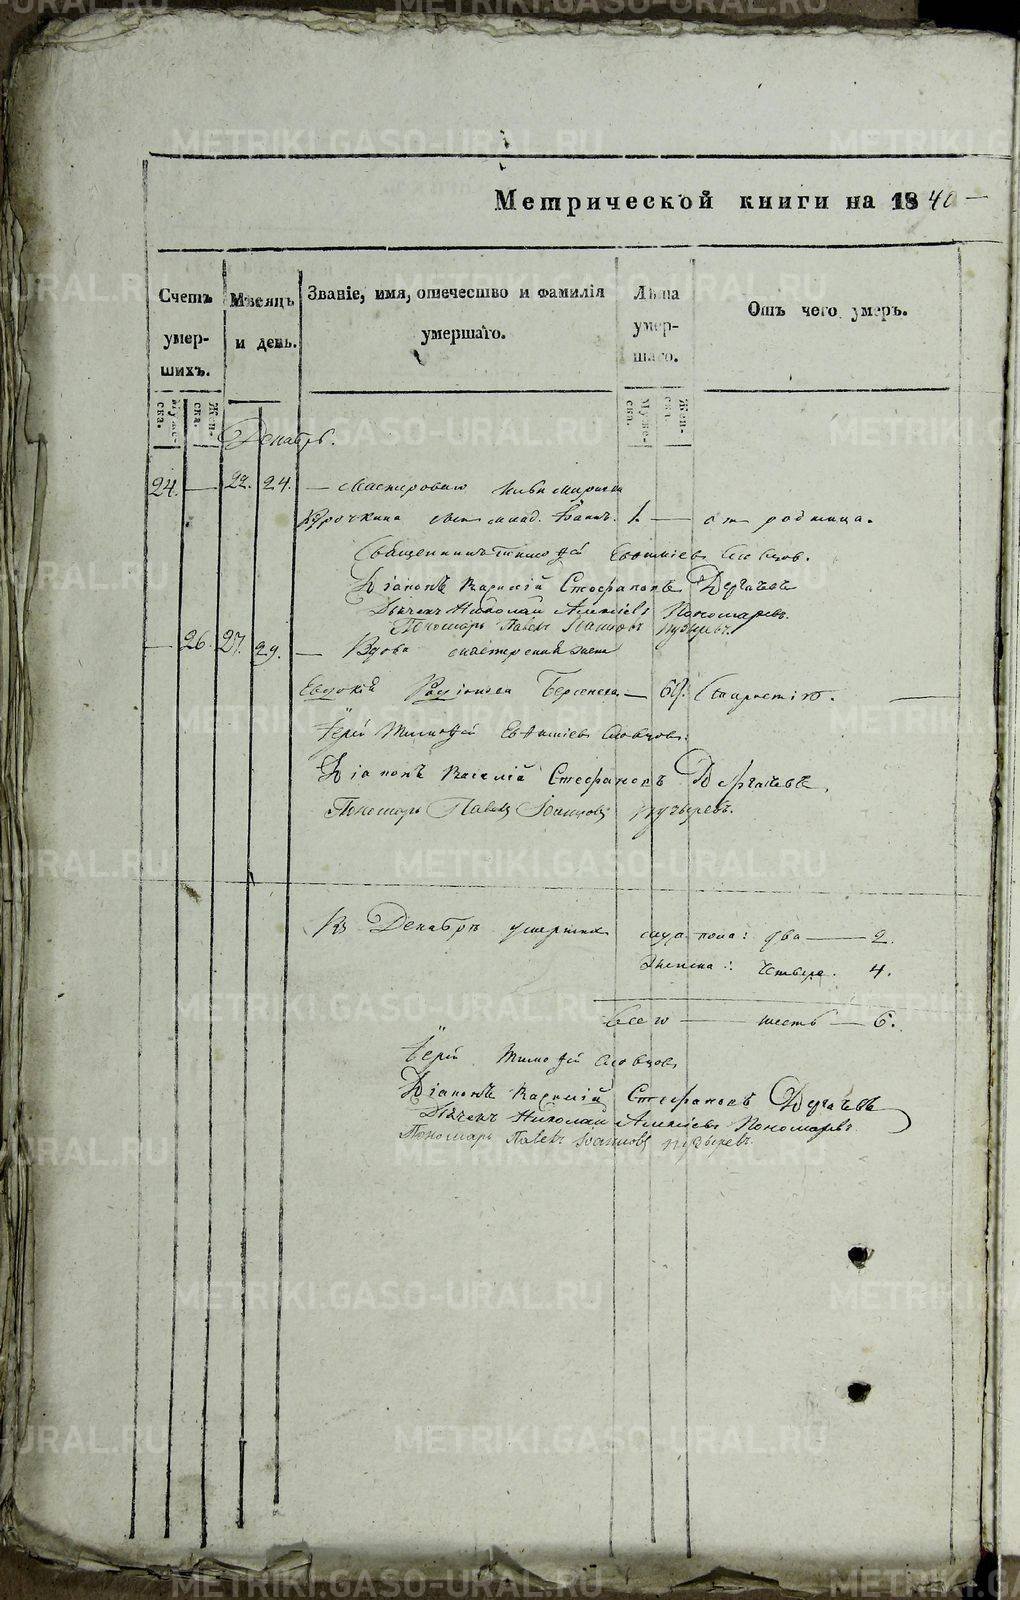 Метрической книги на 1840
Счетъ умер- шихъ.
Мѣсяцъ и день.
Званіе, имя, отечество и фамилія умершаго.
Лѣта умер- шаго.
Отъ чего умеръ.
Муже- ска.
Жен- ска.
Муже- ска.
Жен- ска.
Декабрь.
24. — 22. 24. — Мастероваго
Курочкина сынъ млад. Іоаннъ. 1. — от родимца.
Священникъ Тимоѳей Евѳиміевъ Словцов.
Діаконъ Василій Стефановъ Дергачевъ
Дьячекъ Николай Алексіевъ Пономаревъ.
Пономарь Павелъ Іоанновъ Пузыревъ.
— 26. 27. 29. — Вдова мастерская жена
Евдокія Родіонова Берсенева — 60. Старостію. —
Іерей Тимоѳей Евѳиміевъ Словцовъ.
Діаконъ Василій Стефановъ Дергачевъ.
Пономарь Павелъ Іоанновъ Пузыревъ.
Въ Декабрѣ умершихъ муж. пола: два — 2.
Женска: четыре. 4.
Всего — шесть — 6.
Іерей Тимоѳей Словцовъ
Діаконъ Василій Стефановъ Дергачевъ
Дьячекъ Николай Алексіевъ Пономаревъ
Пономарь Павелъ Іоанновъ Пузыревъ.
METRIKI.GASO-URAL.RU